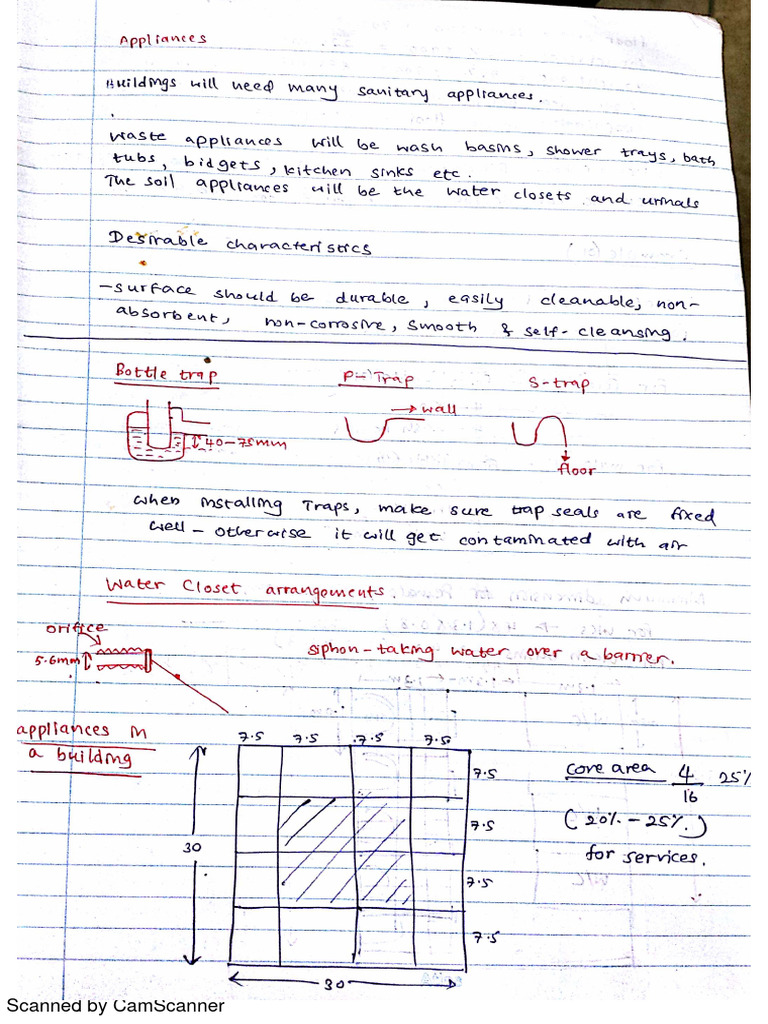 Appliances
Buildings will need many sanitary appliances.
Waste appliances will be wash basins, shower trays, bath
tubs, bidgets, kitchen sinks etc.
The soil appliances will be the water closets and urinals
Desirable characteristics
-surface should be durable, easily cleanable, non-
absorbent, non-corrosive, smooth & self-cleansing.
Bottle trap P-Trap S-trap
→ wall
40-75mm
floor
When installing Traps, make sure trap seals are fixed
well - otherwise it will get contaminated with air
Water Closet arrangements.
orifice
siphon-taking water over a barrier.
5.6mm
appliances in
a building
7.5 7.5 7.5 7.5
7.5
core area 4/16 25%
7.5
(20%-25%.)
30
for services.
7.5
7.5
30
Scanned by CamScanner